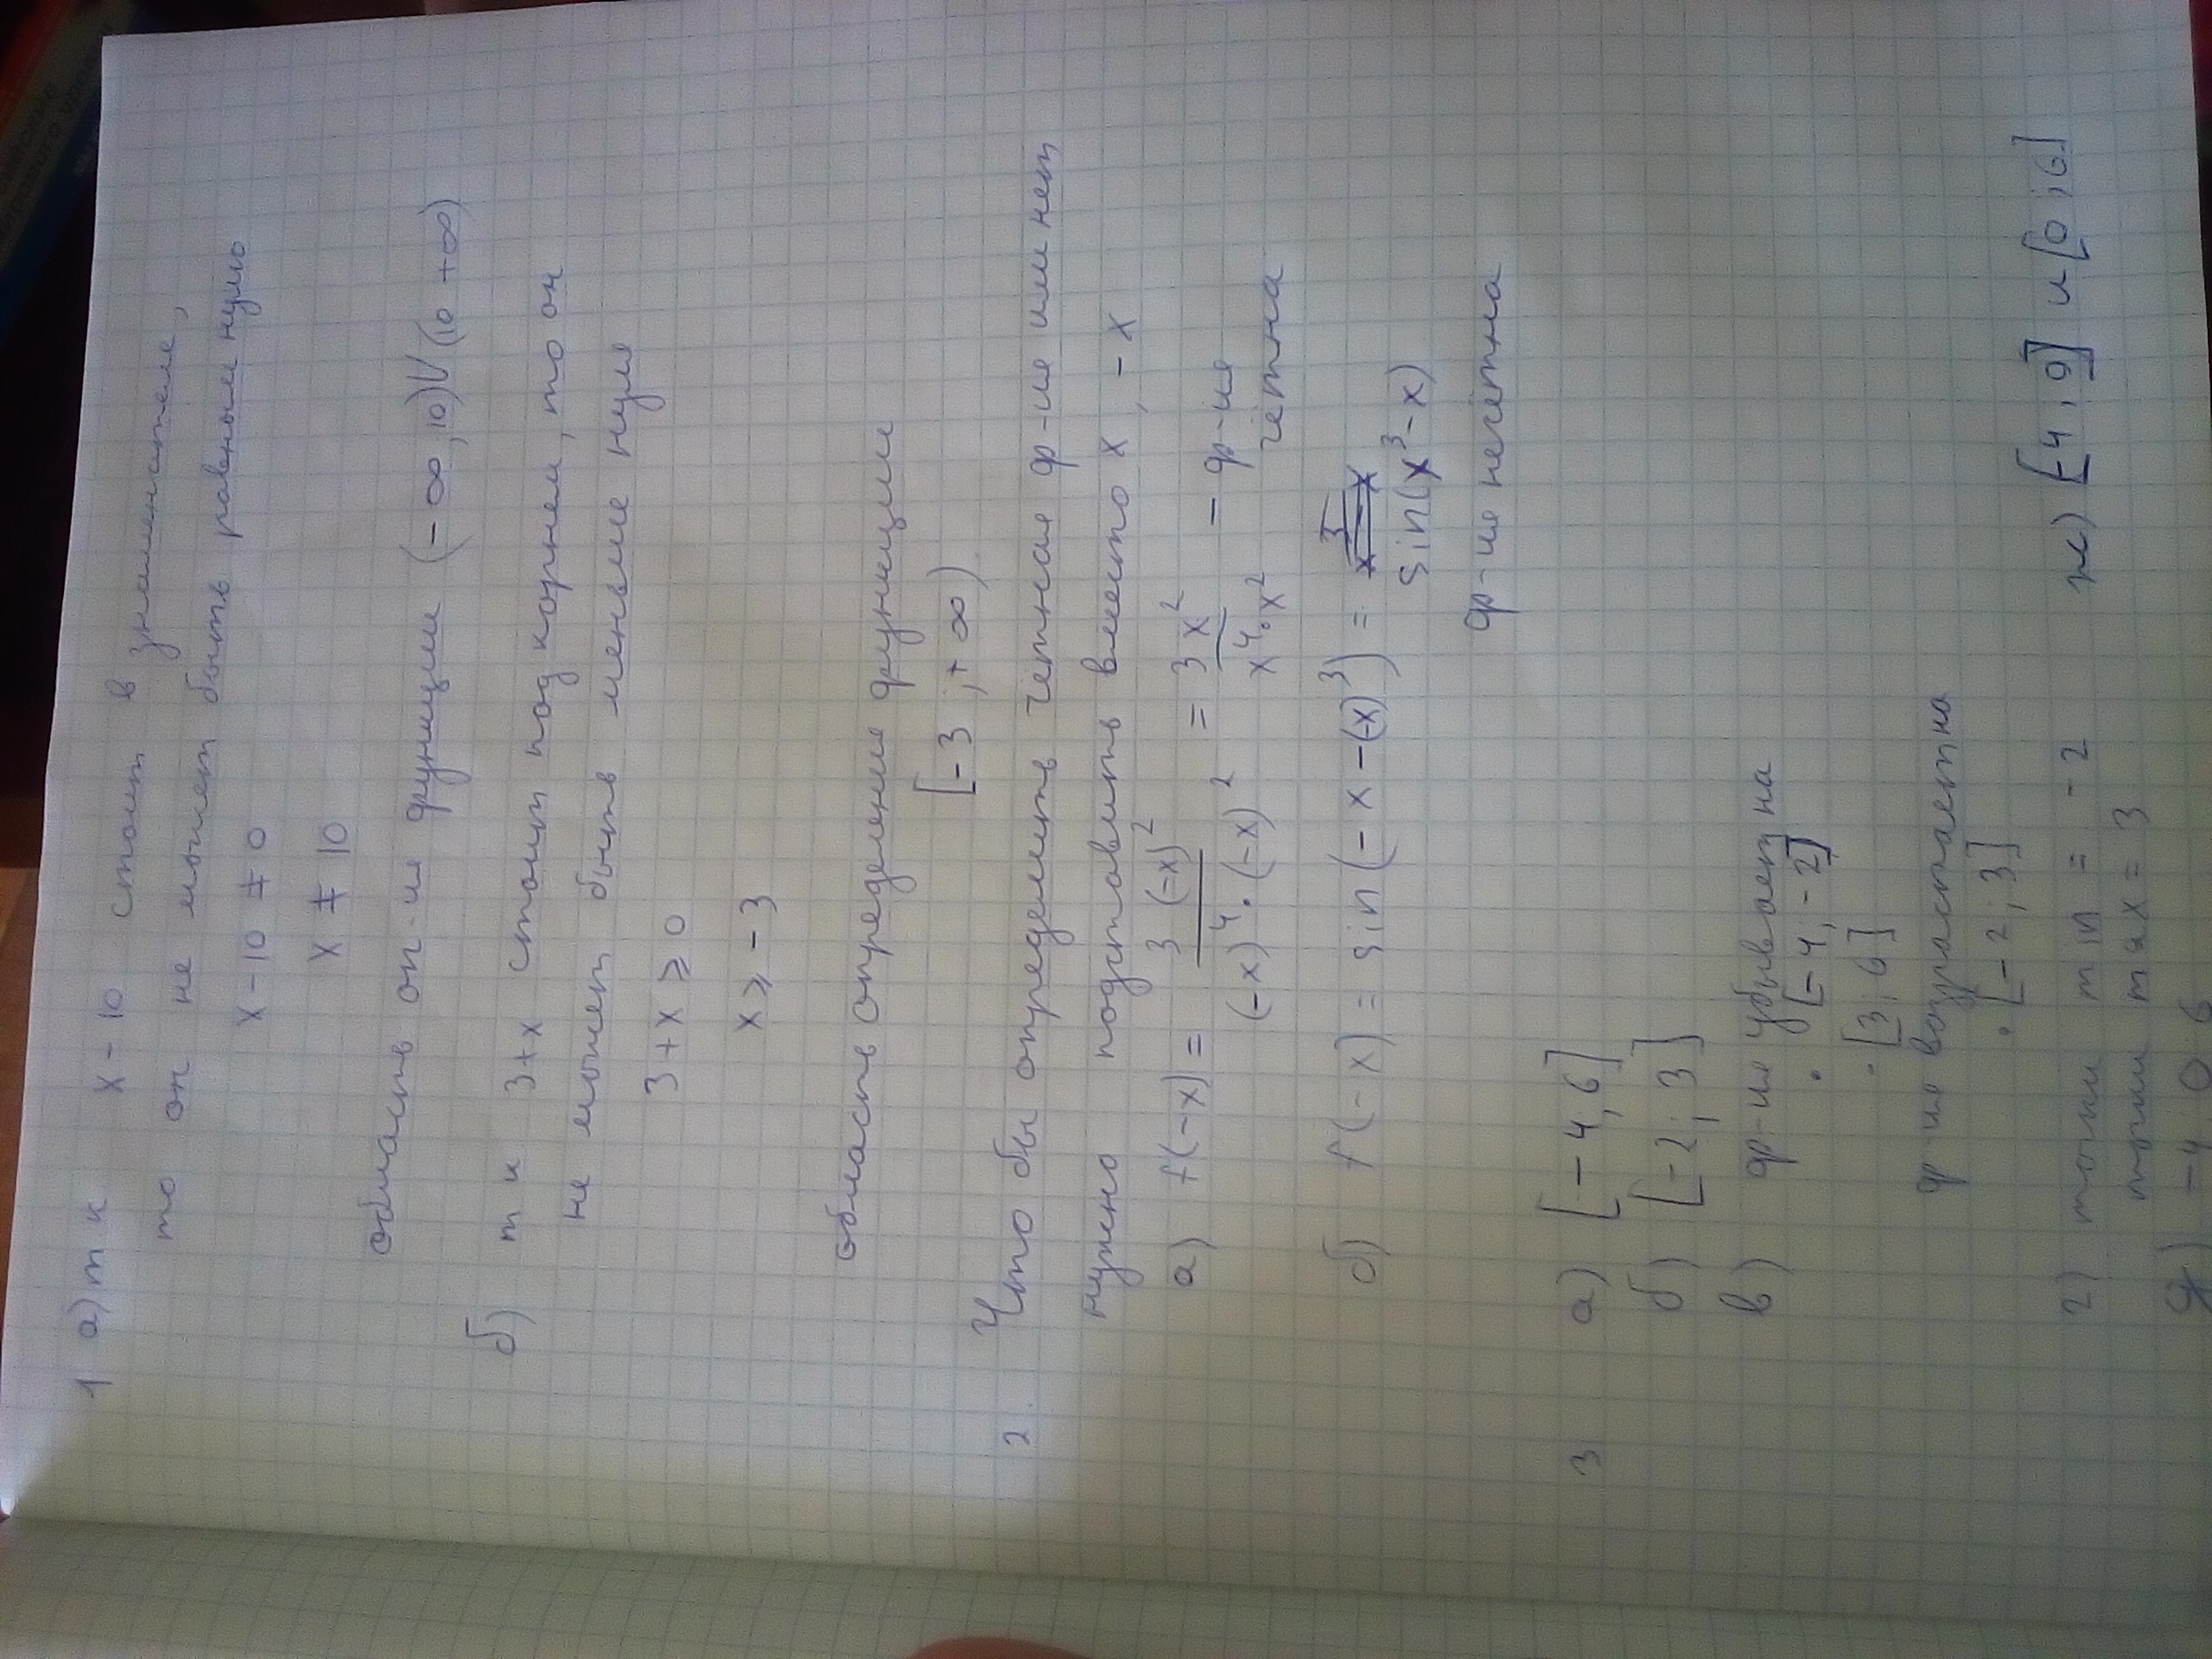 1 а) т к х - 10 стоит в знаменателе,
то он не может быть равным нулю
х - 10 ≠ 0
х ≠ 10
область оп-ия функции (- ∞, 10) V (10 +∞)
б) т к 3+х стоит под корнем, то он
не может быть меньше нуля
3 + х ≥ 0
х ≥ -3
область определения функции
[-3 ; + ∞)
2. Что бы определить четная ф-ия или нет
нужно подставить вместо х, - х
а) f(-x) = 3 (-x)² / (-x)⁴ · (-x)² = 3 x² / x⁴ · x² - ф-ия
чётна
б) f(-x) = sin(- x -(-x)³) =
sin(x³ - x)
ф-ия нечётна
3 а) [-4, 6]
б) [-2 ; 3]
в) ф-ия убывает на
· [-4 ; -2]
· [3 ; 6]
ф ия возрастает на
· [-2 ; 3]
г) точки min = -2 ж) [-4 ; 9] и [0 ; 6]
точки max = 3
g) -4 0 6